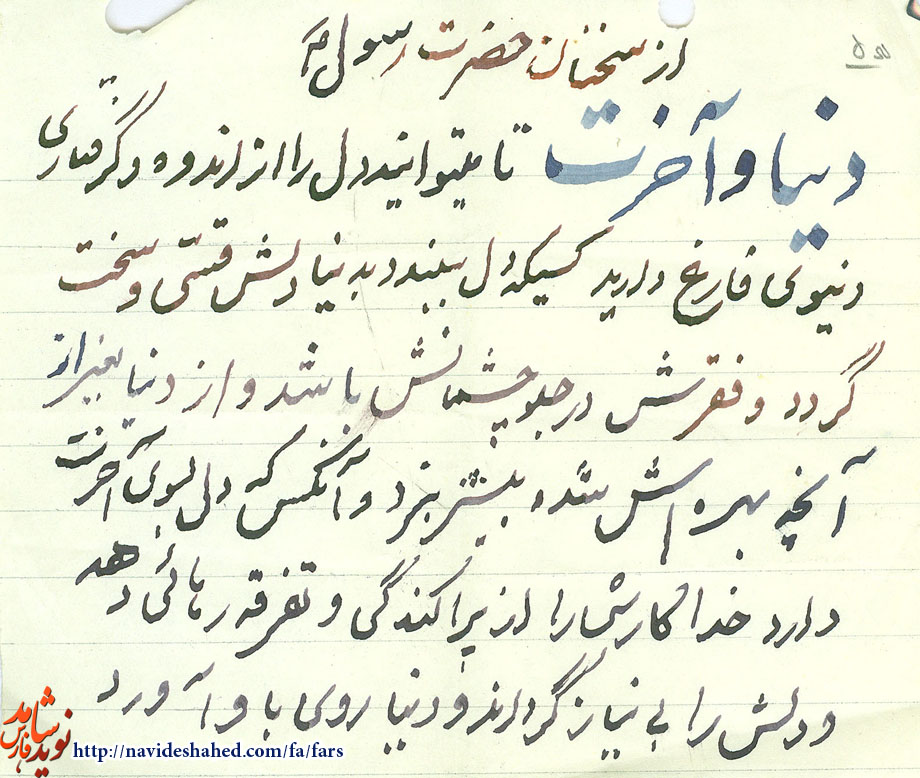 از سخنان حضرت رسول ﷺ
دنیا و آخرت تا میتوانید دل را از اندوه و گرفتاری
دنیوی فارغ دارید کسیکه دل ببندد بدنیا دلش قسی و سخت
گردد و فقرش در جلو چشمانش باشد و از دنیا بغیر از
آنچه بهره اش شده بیشتر نبرد و آنکس که دل بسوی آخرت
دارد خدا کارش را از پراکندگی و تفرقه رهائی دهد
و دلش را بی نیاز گرداند و دنیا روی باو آورد
نوید شاهد فارس
http://navideshahed.com/fa/fars